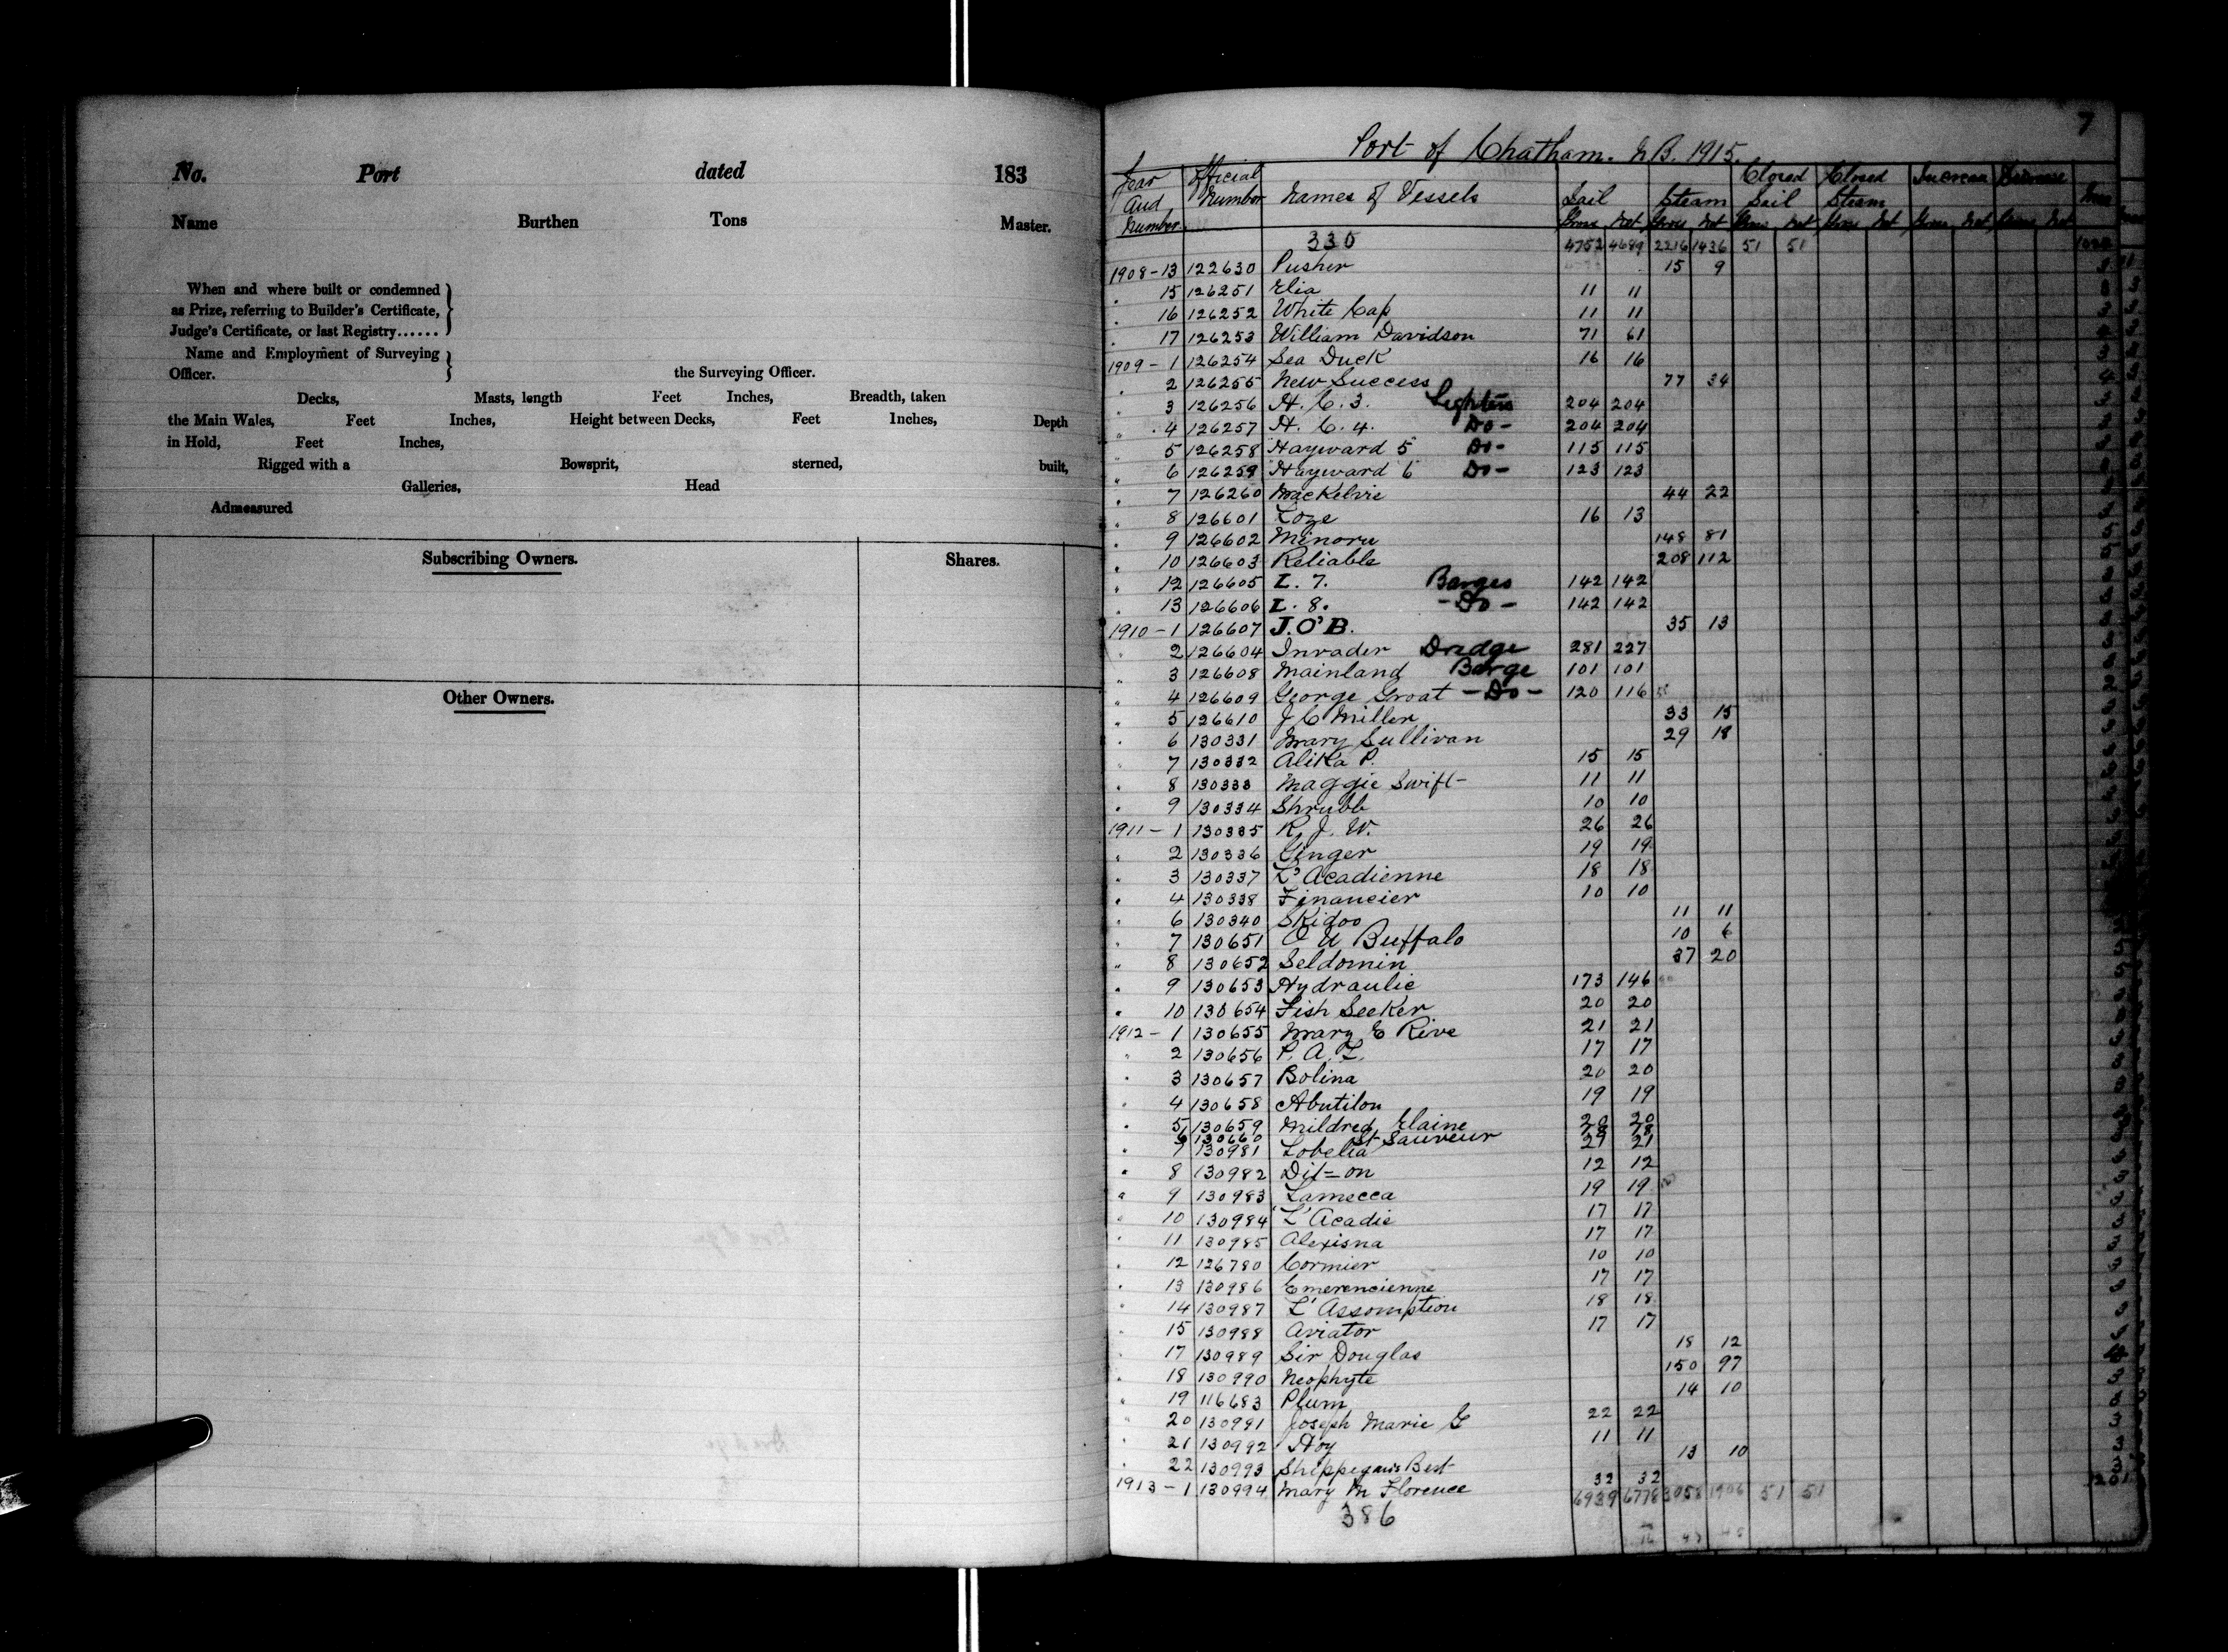 No. Port dated 183
Name Burthen Tons Master.
When and where built or condemned
as Prize, referring to Builder's Certificate,
Judge's Certificate, or last Registry......
Name and Employment of Surveying
Officer. the Surveying Officer.
Decks, Masts, length Feet Inches, Breadth, taken
the Main Wales, Feet Inches, Height between Decks, Feet Inches, Depth
in Hold, Feet Inches,
Rigged with a Bowsprit, sterned, built,
Galleries, Head
Admeasured
Subscribing Owners. Shares.
Other Owners.
7
Port of Chatham. N.B. 1915.
Year and Number Official Number Names of Vessels Sail Steam Closed Sail Closed Steam Increase Decrease
Gross Net Gross Net Gross Net Gross Net Gross Net Gross Net
330 4752 4689 2216 1436 51 51
1908-13 122630 Pusher 15 9
" 15 126251 Elia 11 11
" 16 126252 White Cap 11 11
" 17 126253 William Davidson 71 61
1909-1 126254 Sea Duck 16 16
" 2 126255 New Success 77 34
" 3 126256 H. C. 3. Lighters 204 204
" 4 126257 H. C. 4. Do- 204 204
" 5 126258 "Hayward 5" Do- 115 115
" 6 126259 "Hayward 6" Do- 123 123
" 7 126260 MacKelvie 44 22
" 8 126601 Loze 16 13
" 9 126602 Minoru 148 81
" 10 126603 Reliable 208 112
" 12 126605 L. 7. Barges 142 142
" 13 126606 L. 8. -Do- 142 142
1910-1 126607 J.O'B. 35 13
" 2 126604 Invader Dredge 281 227
" 3 126608 Mainland Barge 101 101
" 4 126609 George Groat -Do- 120 116
" 5 126610 J C Miller 33 15
" 6 130331 Mary Sullivan 29 18
" 7 130332 Alika P. 15 15
" 8 130333 Maggie Swift 11 11
" 9 130334 Shrubb 10 10
1911-1 130335 R. J. W. 26 26
" 2 130336 Ginger 19 19
" 3 130337 L'Acadienne 18 18
" 4 130338 Financier 10 10
" 6 130340 Skidoo 11 11
" 7 130651 O U Buffalo 10 6
" 8 130652 Seldomin 37 20
" 9 130653 Hydraulic 173 146
" 10 130654 Fish Seeker 20 20
1912-1 130655 Mary E Rive 21 21
" 2 130656 P. A. L. 17 17
" 3 130657 Bolina 20 20
" 4 130658 Abutilon 19 19
" 5 130659 Mildred Elaine 20 20
6 130660 St Sauveur 28 28
" 7 130981 Lobelia 21 21
" 8 130982 Dit=on 12 12
" 9 130983 Lamecca 19 19
" 10 130984 'L'Acadie 17 17
" 11 130985 Alexisna 17 17
" 12 126780 Cormier 10 10
" 13 130986 Emerencienne 17 17
" 14 130987 L'Assomption 18 18
" 15 130988 Aviator 17 17
" 17 130989 Sir Douglas 18 12
" 18 130990 Neophyte 150 97
" 19 116683 Plum 14 10
" 20 130991 Joseph Marie G 22 22
" 21 130992 Hoy 11 11
" 22 130993 Shippegan's Best 13 10
1913-1 130994 Mary M Florence 32 32
6939 6778 3058 1906 51 51
386